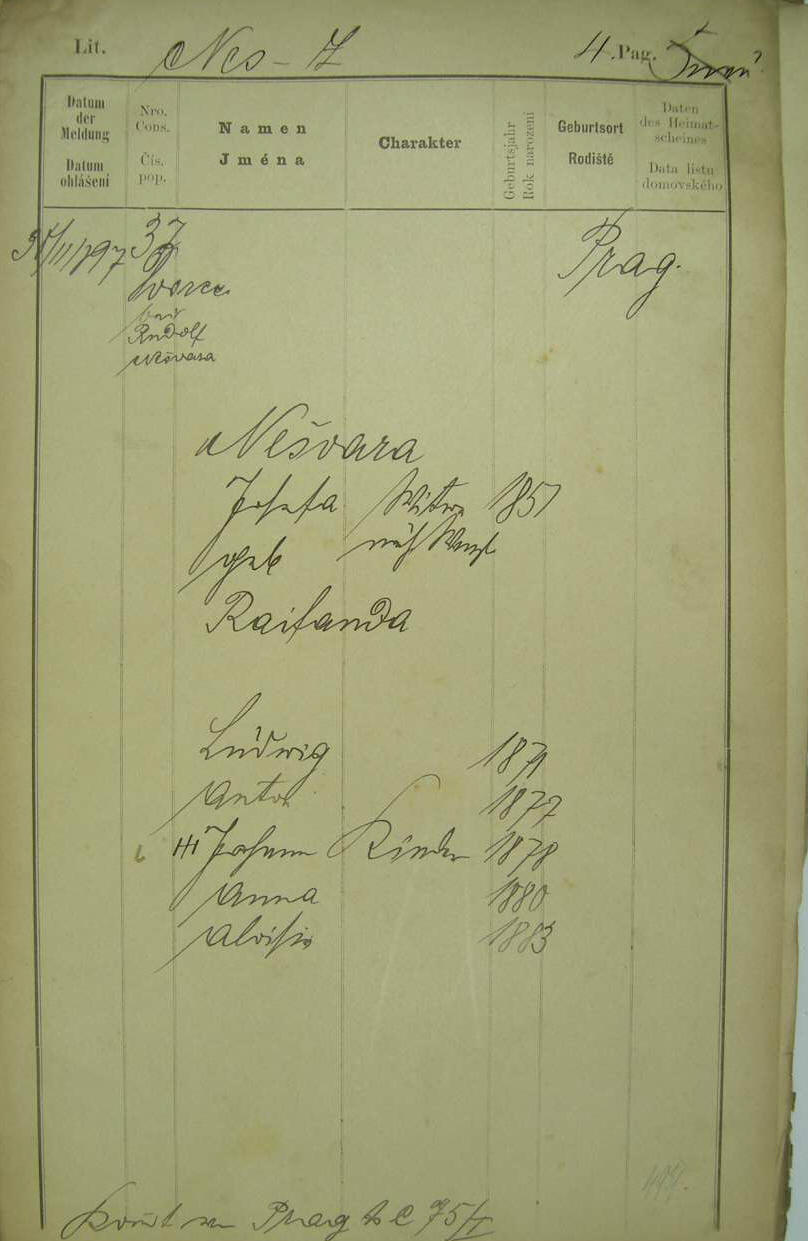 Lit. Nes - Z 4. Pag.
Datum der Meldung
Datum ohlášení
Nro. Cons.
Čís. pop.
Namen
Jména
Charakter
Geburtsjahr
Rok narození
Geburtsort
Rodiště
Daten des Heimatscheines
Data listu domovského
37 Prag.
bei
Rudolf
Nešvara
Nešvara
Josefa Witwe 1851
geb nach
Raifanda
Ludwig 1871
Anton 1877
Johann Kinder 1878
Anna 1880
Aloisia 1883
Prag 75/I